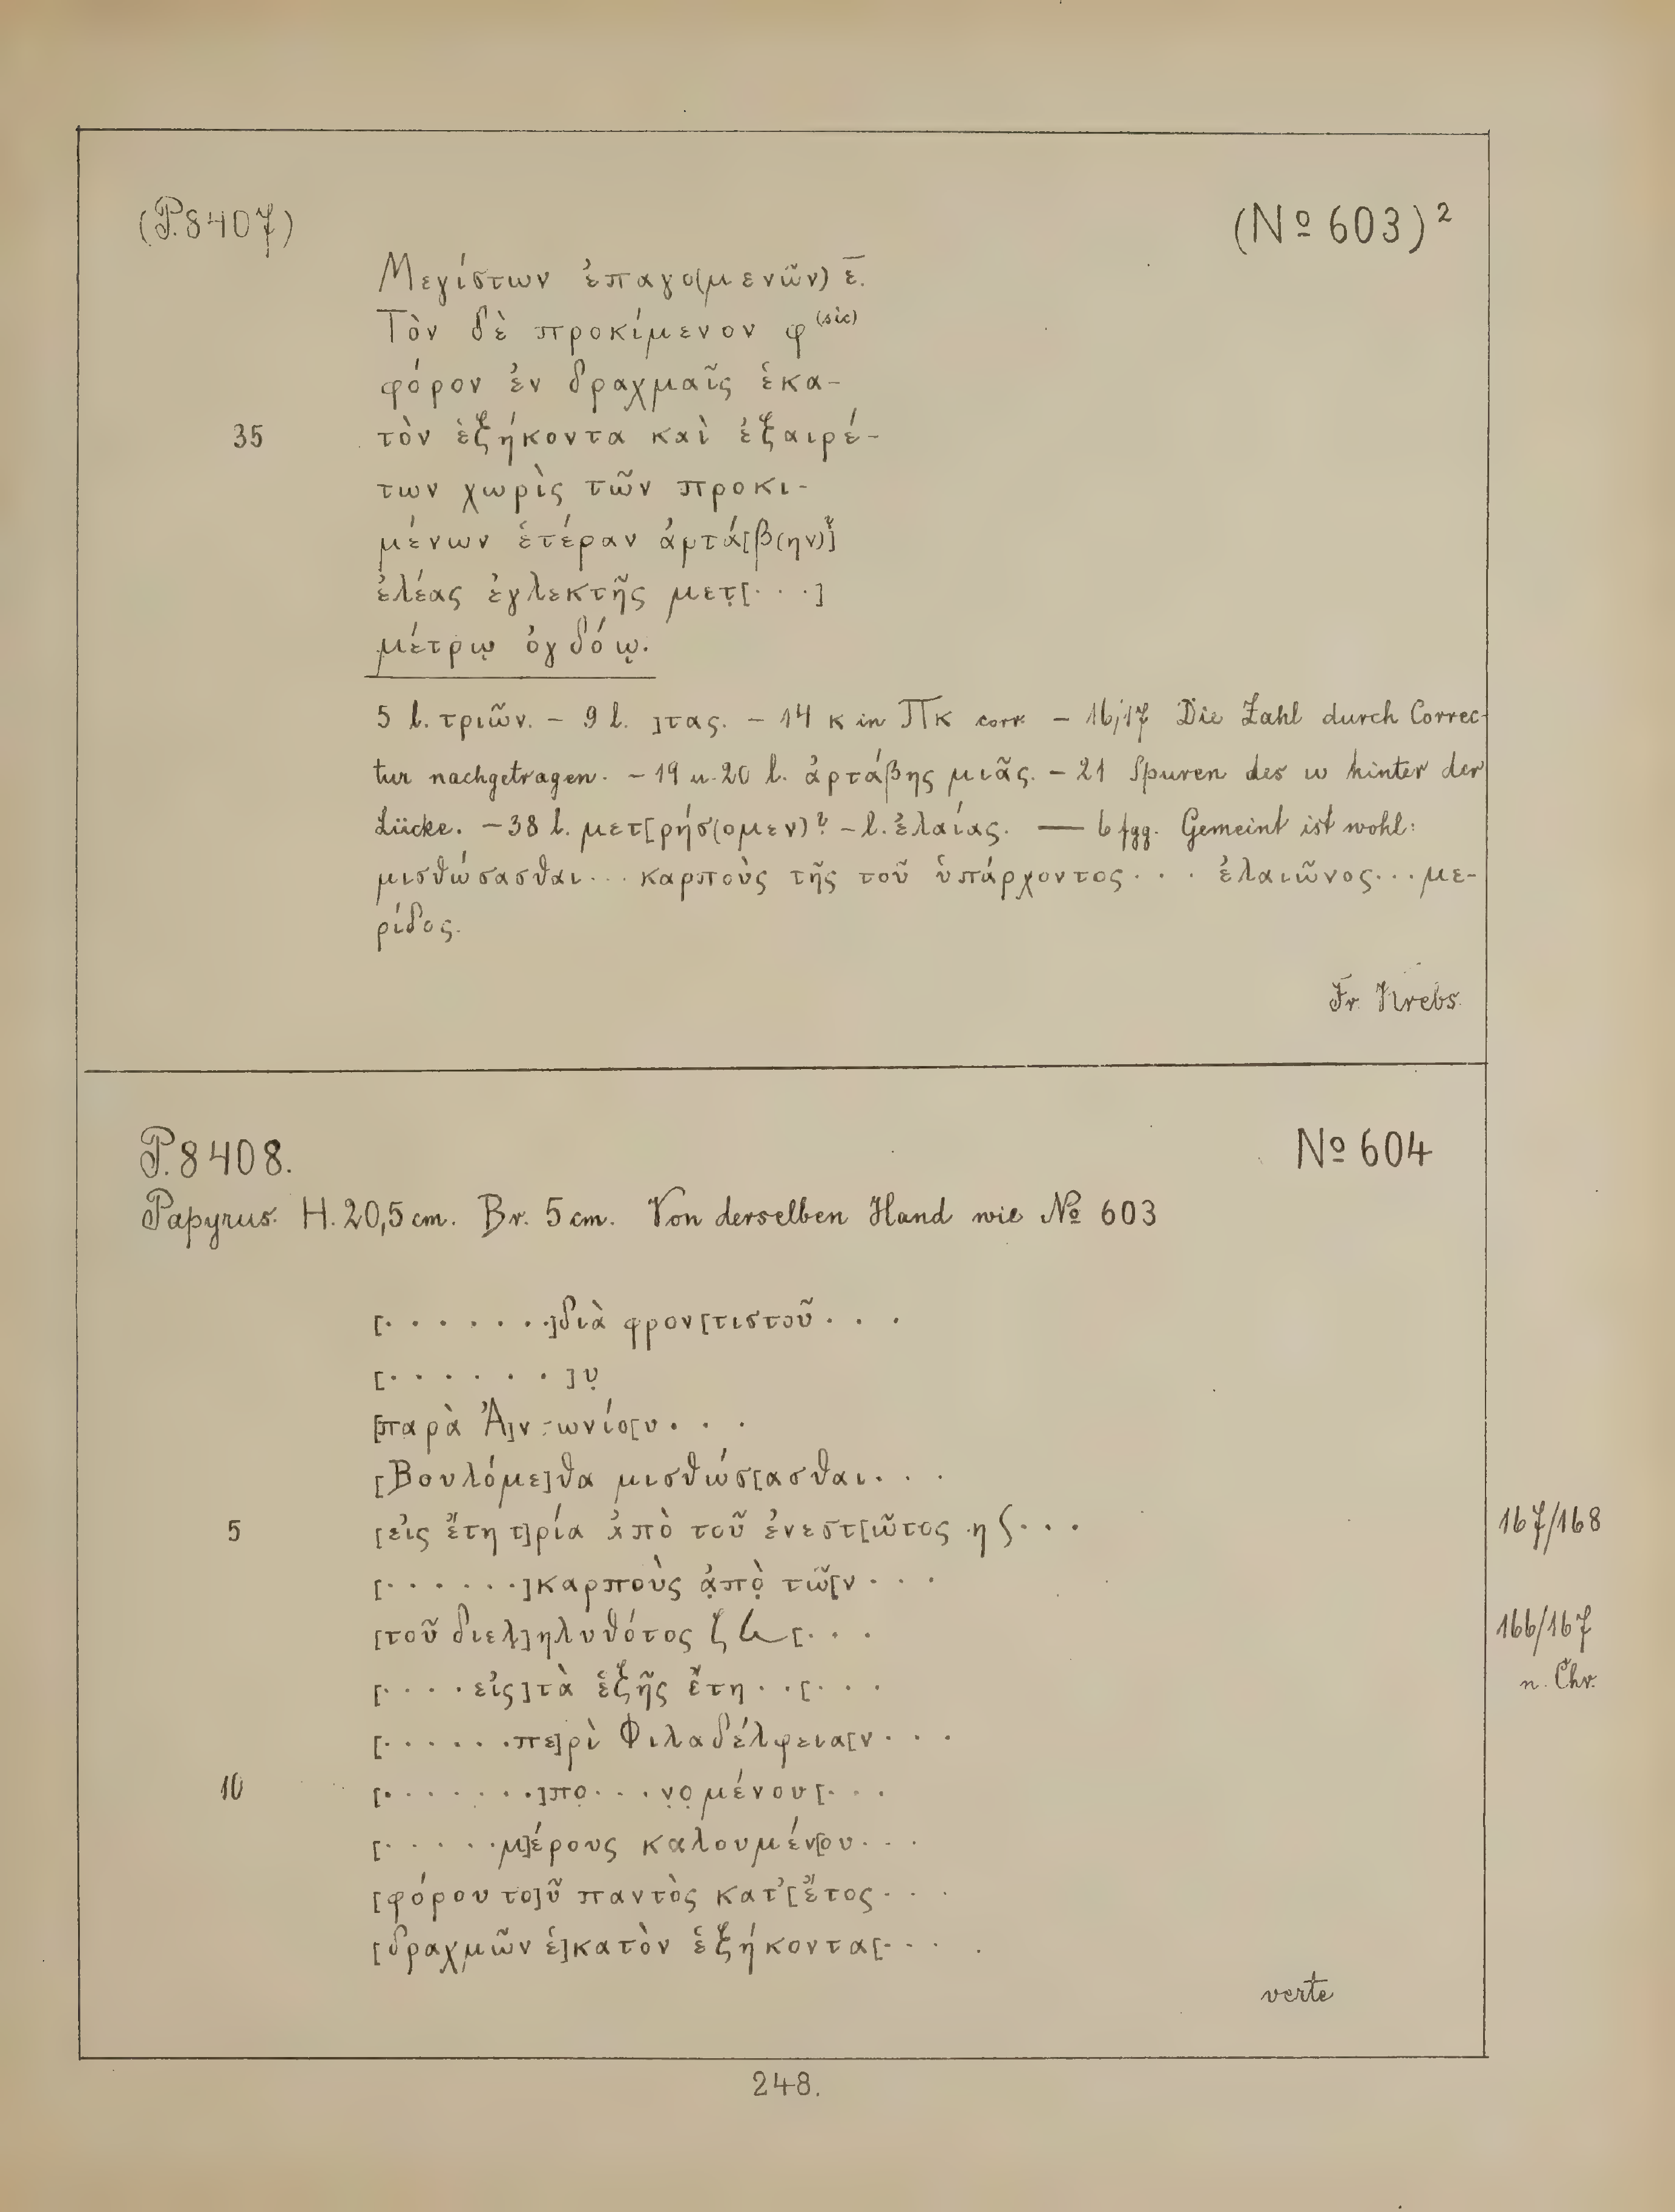 (P.8407)
(Nº 603)²
Μεγίστων ἐπαγο(μενῶν) ε̅.
Τὸν δὲ προκίμενον φ (sic)
φόρον ἐν δραχμαῖς ἑκα-
35 τὸν ἑξήκοντα καὶ ἐξαιρέ-
των χωρὶς τῶν προκι-
μένων ἑτέραν ἀρτά[β(ην)?]
ἐλέας ἐγλεκτῆς μετ̣[· · ·]
μέτρῳ ὀγδόῳ.
5 l. τριῶν. – 9 l. ]τας. – 14 κ in Πκ corr. – 16/17 Die Zahl durch Correc-
tur nachgetragen. – 19 u. 20 l. ἀρτάβης μιᾶς. – 21 Spuren des ω hinter der
Lücke. – 38 l. μετ[ρήσ(ομεν)? – l. ἐλαίας. — 6 fgg. Gemeint ist wohl:
μισθώσασθαι··· καρποὺς τῆς τοῦ ὑπάρχοντος··· ἐλαιῶνος··· με-
ρίδος.
Fr. Krebs
P. 8408.
Nº 604
Papyrus. H. 20,5 cm. Br. 5 cm. Von derselben Hand wie Nº 603
[· · · · · · ·]διὰ φρον[τιστοῦ · · ·
[· · · · · · ·]υ̣
[παρὰ Ἀ]ντωνίο[υ · · ·
[Βουλόμε]θα μισθώσ[ασθαι · · ·
5 [εἰς ἔτη τ]ρία ἀπὸ τοῦ ἐνεστ[ῶτος η ϛ · · ·
167/168
[· · · · · ·]καρποὺς ἀ̣πὸ̣ τῶ[ν · · ·
[τοῦ διελ]ηλυθότος ζ 𐅹 [· · ·
166/167
n. Chr.
[· · · · εἰς]τὰ ἑξῆς ἔτη · · [· · ·
[· · · · · · πε]ρὶ Φιλαδέλφεια[ν · · ·
10 [· · · · · · ·]πο̣ · · · ν̣ο̣μένου[· · ·
[· · · · · μ]έρους καλουμέν[ου · · ·
[φόρου το]ῦ παντὸς κατ'[ἔτος · · ·
[δραχμῶν ἑ]κατὸν ἑξήκοντα[· · ·
verte
248.